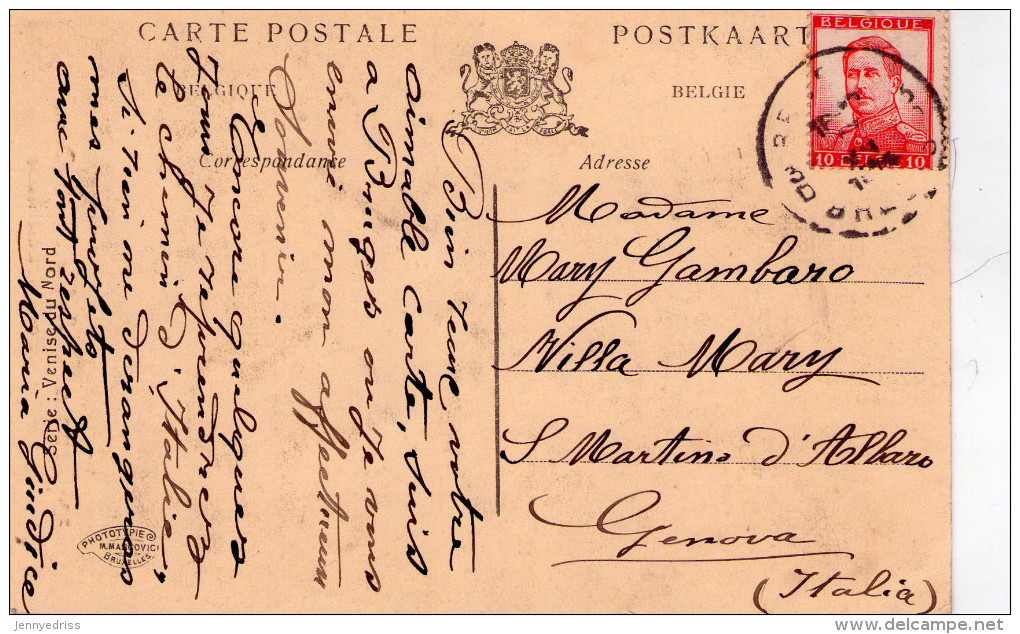 CARTE POSTALE
POSTKAART
BELGIQUE
BELGIE
Correspondance
Adresse
BELGIQUE
10 10
Bien reçue votre
aimable carte, suis
a Bruges ou je vous
envie mon affectueux
Souvenir.
Encore quelques
jours je reprendrers
le chemin d'Italie
si rien ne derangeras
mes
avec tout respect
Maria Giudice
Madame
Mary Gambaro
Villa Mary
S Martino d'Albaro
Genova
(Italia)
Serie : Venise du Nord
PHOTOTYPIE
M. MARCOVICI
BRUXELLES
jennyedriss
www.delcampe.net